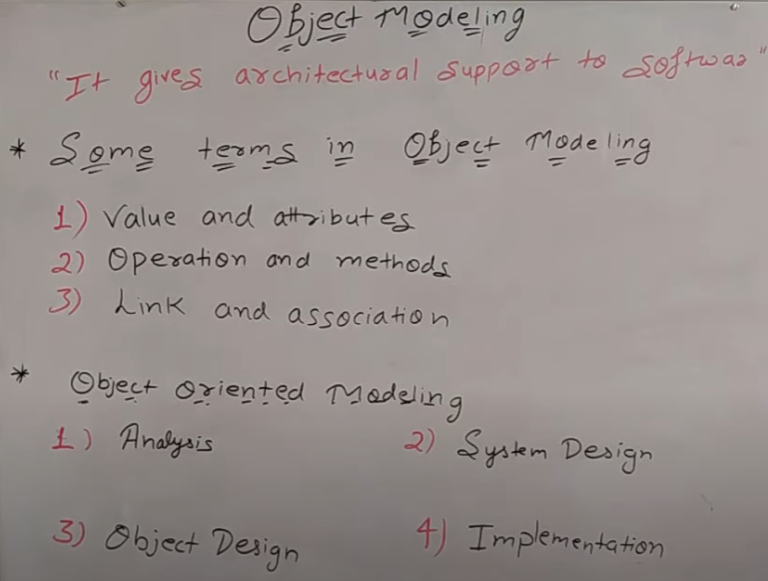 Object Modeling
"It gives architectural support to Softwar"
* Some terms in Object Modeling
1) Value and attributes
2) Operation and methods
3) Link and association
* Object Oriented Modeling
1) Analysis 2) System Design
3) Object Design 4) Implementation